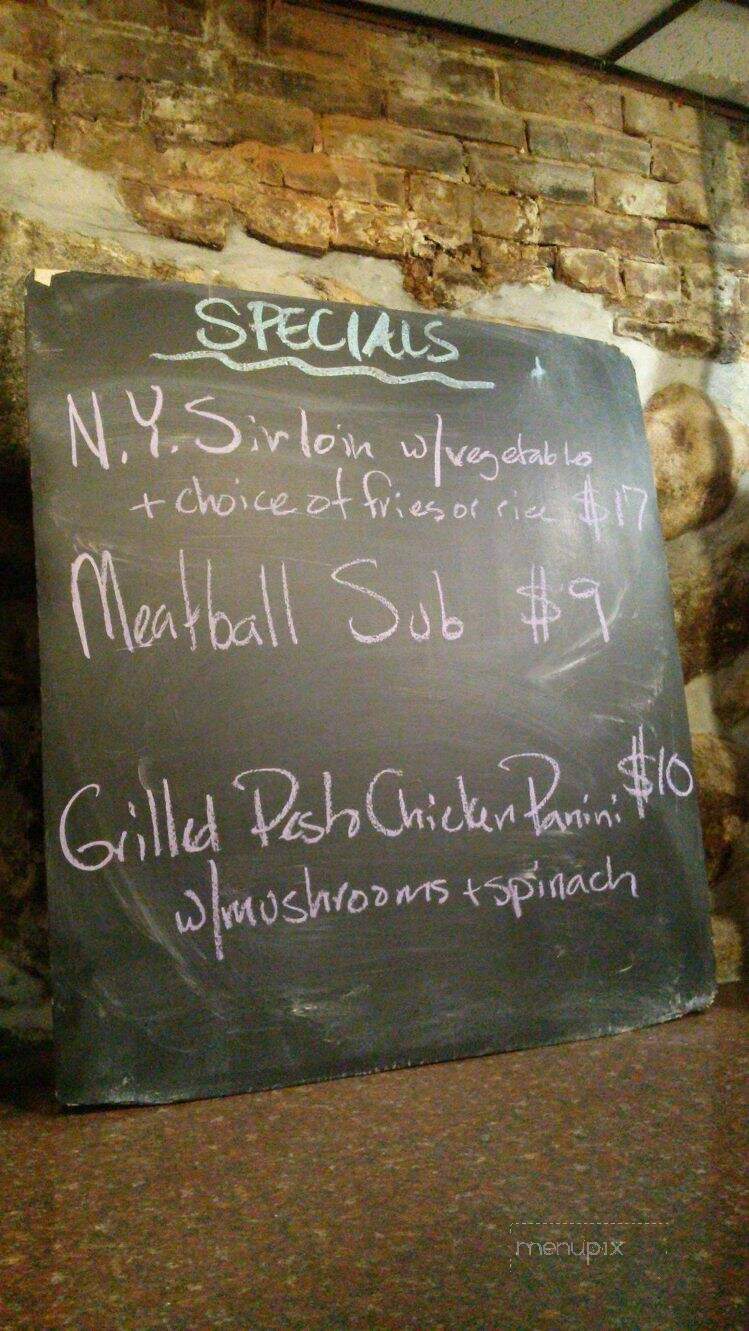 SPECIALS
N.Y. Sirloin w/vegetables
+ choice of fries or rice $17
Meatball Sub $9
Grilled Pesto Chicken Panini $10
w/mushrooms + spinach
menupix